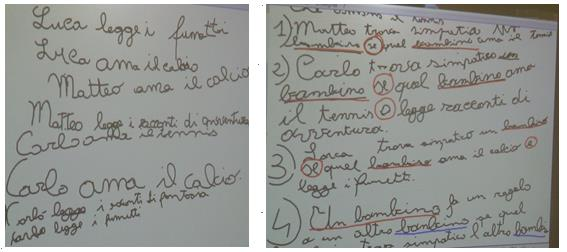 Luca legge i fumetti
Luca ama il calcio
Matteo ama il calcio
Matteo legge i racconti di avventura
Carlo ama il tennis
Carlo ama il calcio.
Carlo legge i
Carlo legge i fumetti
1) Matteo trova simpatico un
bambino se quel bambino ama il tennis
2) Carlo trova simpatico un
bambino se quel bambino ama
il tennis o legge racconti di
avventura.
3) Luca trova simpatico un bambino
se quel bambino ama il calcio e
legge i fumetti.
4) Un bambino fa un regalo
a un altro bambino se quel
simpatico l'altro